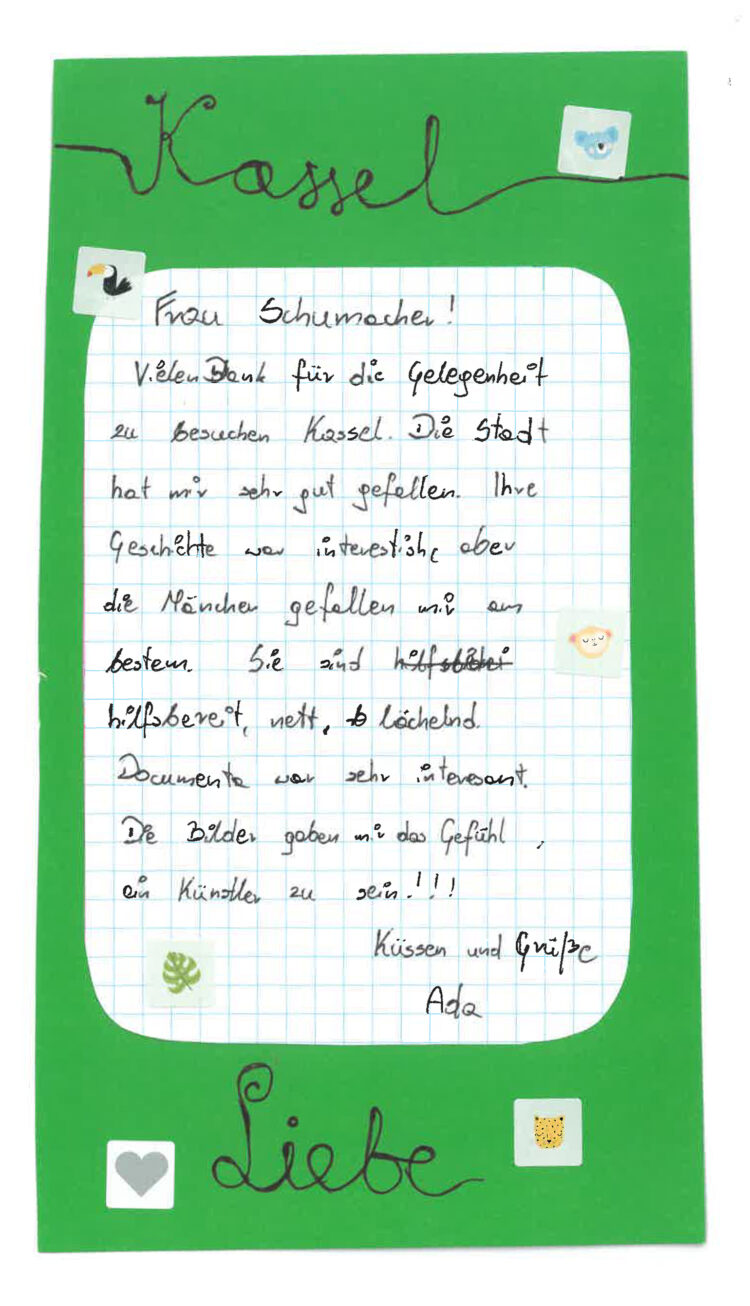 Kassel
Frau Schumacher!
Vielen Dank für die Gelegenheit
zu besuchen Kassel. Die Stadt
hat mir sehr gut gefallen. Ihre
Geschichte war interestishe aber
die Mäncher gefallen mir am
bestem. Sie sind
hilfsbereit, nett, lächelnd.
Documenta war sehr interesant.
Die Bilder gaben mir das Gefühl,
ein Künstler zu sein!!!
Küssen und Grüße
Ada
Liebe